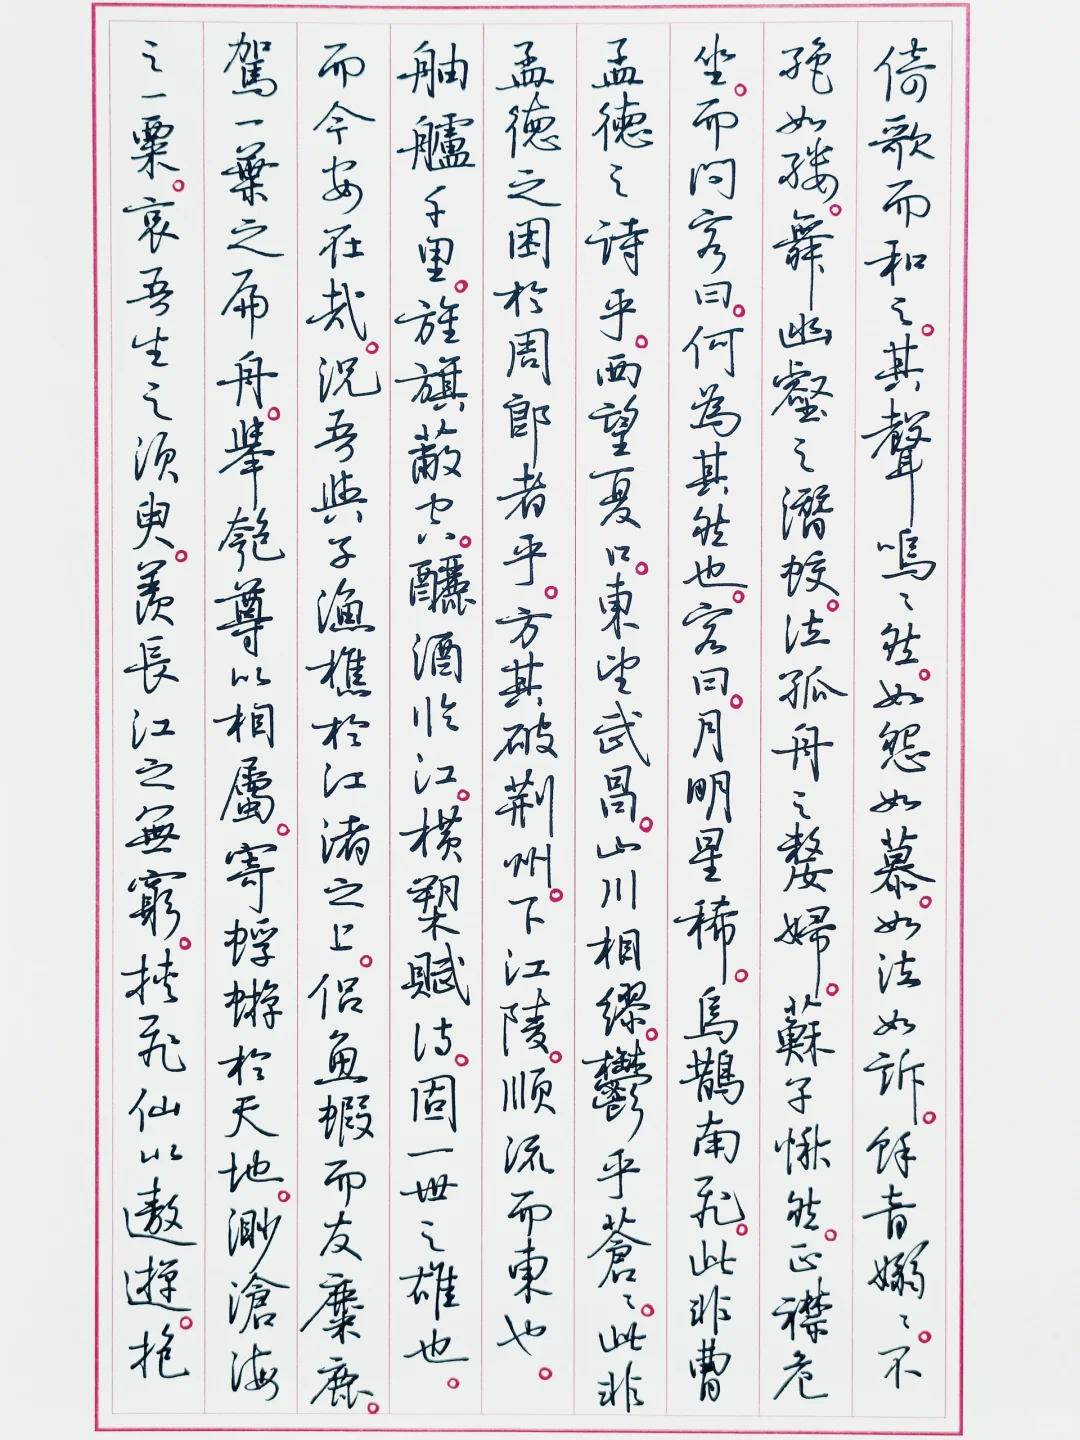 倚歌而和之。其聲嗚〻然。如怨如慕。如泣如訴。餘音嫋〻。不
絕如縷。舞幽壑之潛蛟。泣孤舟之嫠婦。蘇子愀然。正襟危
坐。而問客曰。何為其然也。客曰。月明星稀。烏鵲南飛。此非曹
孟德之詩乎。西望夏口。東望武昌。山川相繆。鬱乎蒼〻。此非
孟德之困於周郎者乎。方其破荆州。下江陵。順流而東也。
舳艫千里。旌旗蔽空。釃酒臨江。橫槊賦詩。固一世之雄也。
而今安在哉。況吾與子漁樵於江渚之上。侶魚蝦而友麋鹿。
駕一葉之扁舟。舉匏尊以相屬。寄蜉蝣於天地。渺滄海
之一粟。哀吾生之須臾。羨長江之無窮。挾飛仙以遨遊。抱